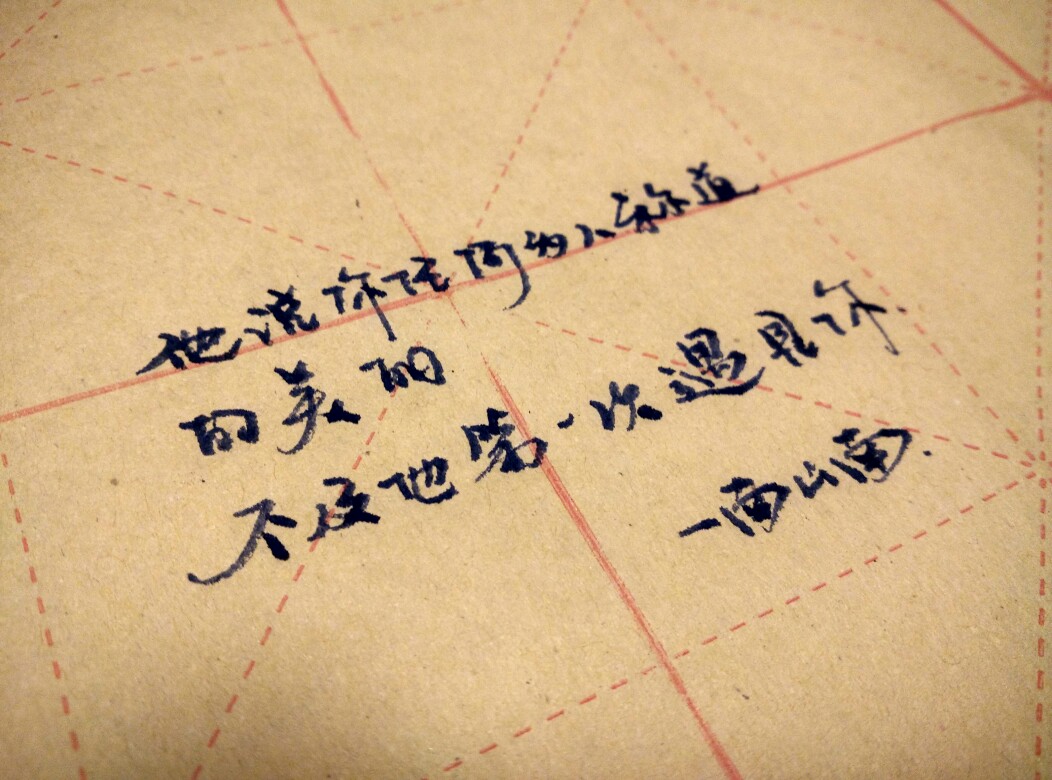 他说你任何为人称道
的美丽
不及他第一次遇见你.
—南山南.